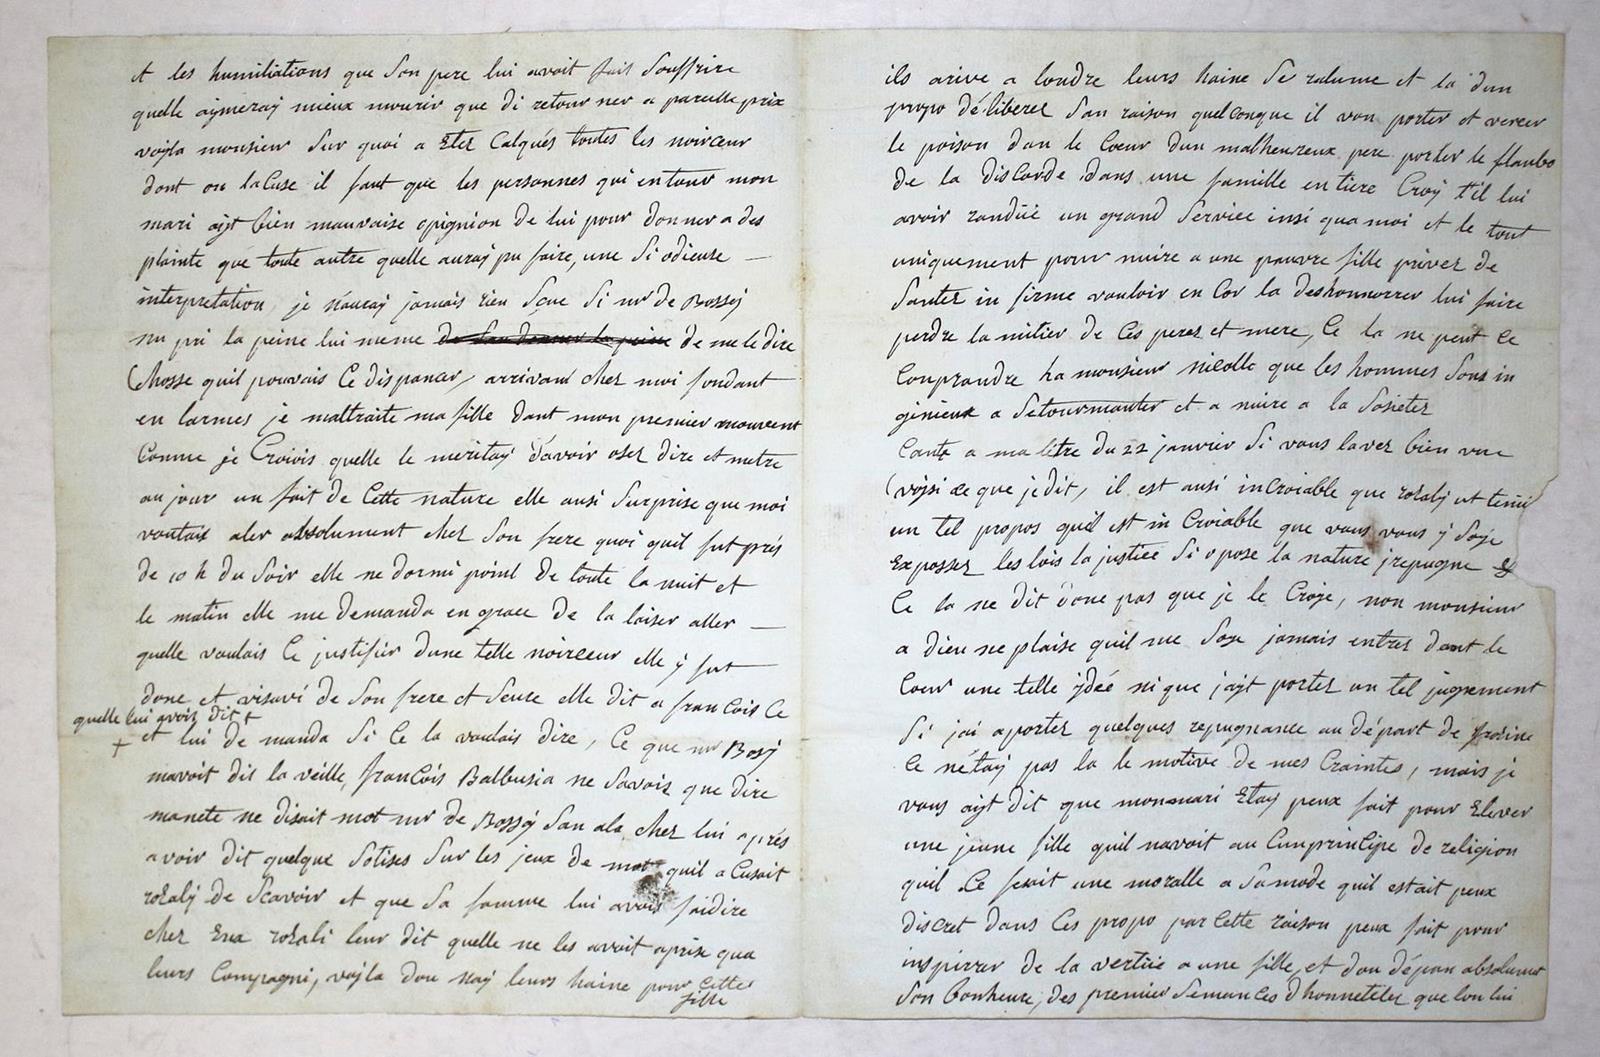 et les humiliations que Son pere lui avoit fait Souffrire
quelle aÿmeraÿ mieux mourir que di retourner a pareille prix
voÿla monsieur Sur quoi a Eter Calqués toutes les noirceur
dont on laCuse il faut que les personnes qui entour mon
mari aÿt bien mauvaise opignion de lui pour donner a des
plainte que toute autre quelle auraÿ pu faire, une Si odieuse —
interpretation, je n'auraÿ jamais rien Sçue Si mr de Bossÿ
nu pri la peine lui meme de me le dire
Chosse quil pouvais Ce dispancer, arrivant chez moi fondant
en larmes je maltraite ma fille dont mon premier mouvent
Comme je Croiois quelle le meritaÿ d'avoir oser dire et metre
au jour un fait de Cette nature elle ausi Surprise que moi
voulais aler absolument chez Son frere quoi quil fut prés
de 10 h du Soir elle ne dormi point de toute la nuit et
le matin elle me demanda en grace de la laiser aller —
quelle voulais Ce justifier dune telle noirceur elle ÿ fut —
donc et visavi de Son frere et Seure elle dit a franCois Ce
quelle lui avois dit +
+ et lui demanda Si Ce la voulais dire, Ce que mr Bosÿ
mavoit dit la veille, franCois Balbusia ne Savois que dire
manete ne disait mot mr de Bossÿ San ala chez lui aprés
avoir dit quelque Sotises Sur les jeux de mot quil aCusait
rosalÿ de Scavoir et que Sa famme lui avois faidire
chez Eux rosali leur dit quelle ne les avoit aprise qua
leurs Compagni, voÿla dou naÿ leurs haine pour cette
fille
ils arive a londre leurs haine Se ralume et la dun
propo déliberer San raison quelConque il von porter et verser
le poison dan le Coeur dun malheureux pere porter le flanbo
de la disCorde dans une famille entiere Croÿ t'il lui
avoir randüe un grand Service insi qua moi et le tout
uniquement pour nuire a une pauvre fille privez de
Santer in firme vouloir en Cor la deshonnorrer lui faire
perdre la mitier de Ces peres et mere, Ce la ne peut Ce
Conprandre ha monsieur nicolle que les hommes Sont in
génieux a Setourmanter et a nuire a la Sosieter
Cante a ma létre du 22 janvier Si vous lavez bien vue
(voÿsi ce que je dit, il est ausi inCroiable que rosalÿ ut tenü
un tel propos quil est in Croiable que vous vous ÿ Soÿe
Exposser les lois la justice Si opose la nature ÿrepugne
Ce la ne dit donc pas que je le Croÿe, non monsieur
a dieu ne plaise quil me Soÿe jamais entrer dant le
Coeur une telle ÿdée ni que jaÿt porter un tel jugement
Si jai aporter quelques repugnance au départ de
Ce nétaÿ pas la le motive de mes Craintes, mais je
vous aÿt dit que monmari Etaÿ peux fait pour Elever
une jeune fille quil navoit auCunprinCipe de religion
quil Ce fesait une moralle a Samode quil estait peux
disCret dans Ces propo par Cette raison peux fait pour
inspirrer de la vertüe a une fille, et dou dépan absolumet
Son Bonheure, des premier Semances dhonneteter que lon lui